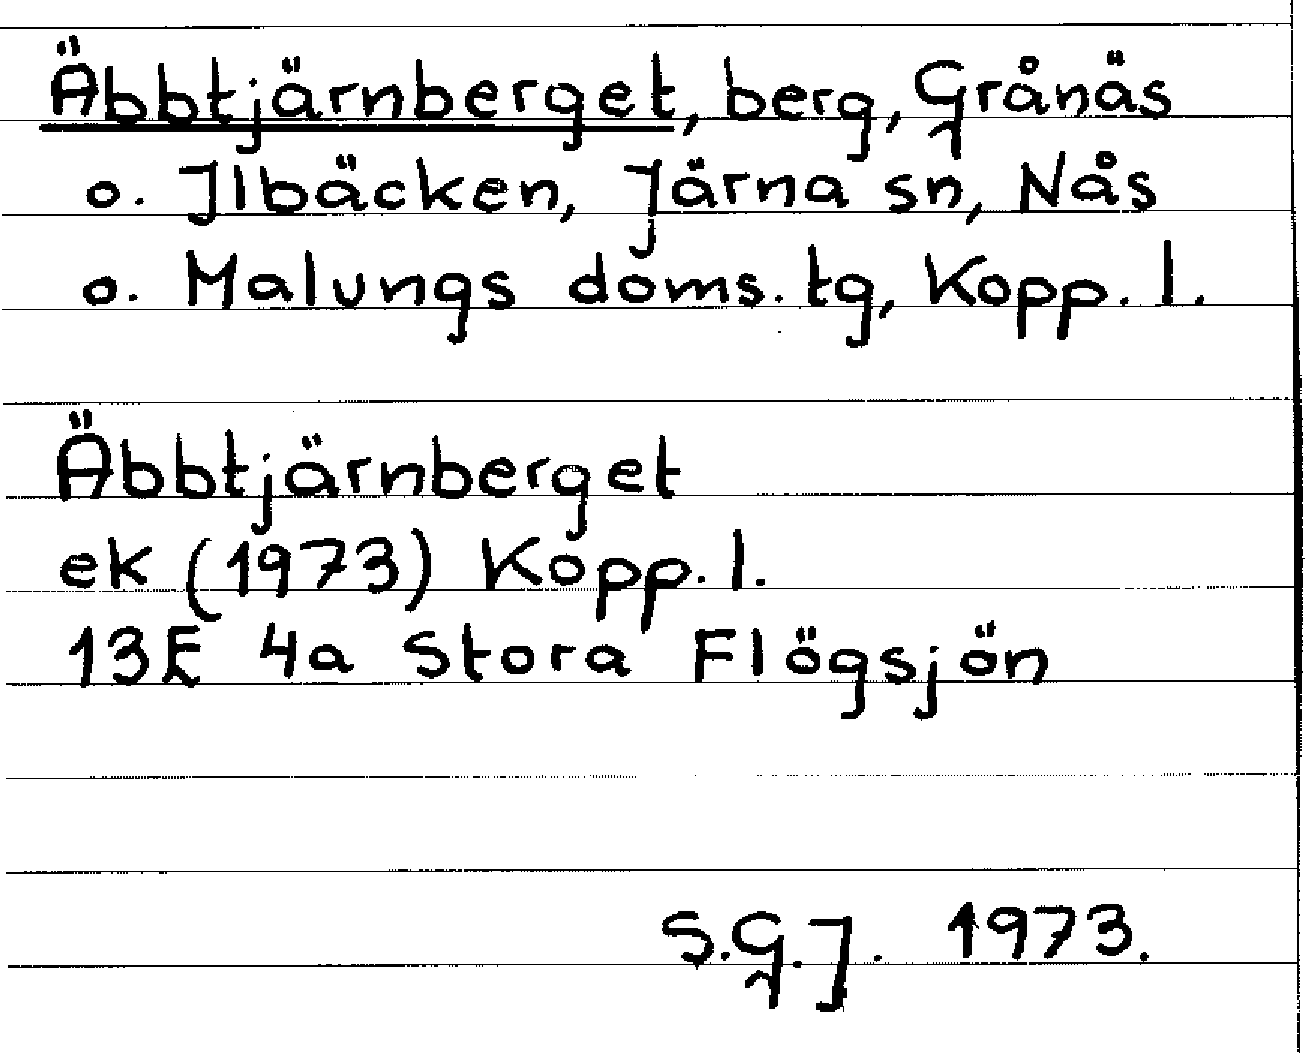 Äbbtjärnberget, berg, Grånäs
o. Ilbäcken, Järna sn, Nås
o. Malungs doms. tg, Kopp. l.
Äbbtjärnberget
ek (1973) Kopp. l.
13E 4a Stora Flögsjön
S.G.J. 1973.